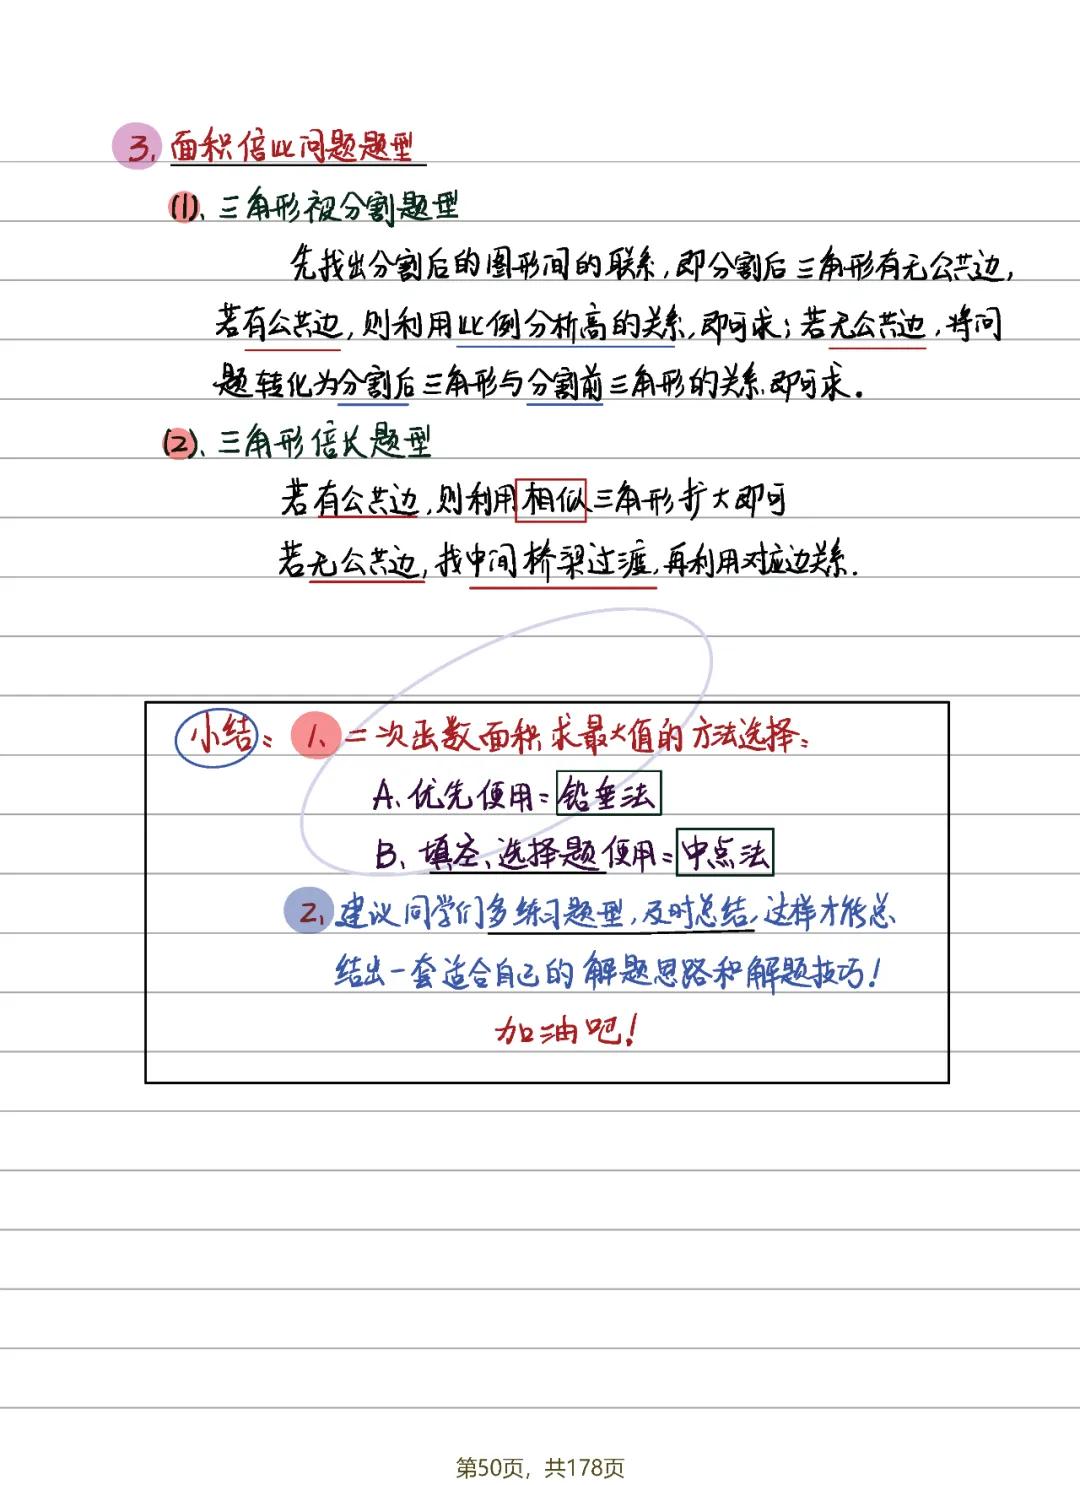 3、面积倍比问题题型
(1)、三角形被分割题型
先找出分割后的图形间的联系,即分割后三角形有无公共边,
若有公共边,则利用比例分析高的关系,即可求;若无公共边,将问
题转化为分割后三角形与分割前三角形的关系,即可求.
(2)、三角形倍长题型
若有公共边,则利用相似三角形扩大即可
若无公共边,找中间桥梁过渡,再利用对应边关系.
小结: 1、二次函数面积求最大值的方法选择:
A、优先使用:铅垂法
B、填空、选择题使用:中点法
2、建议同学们多练习题型,及时总结,这样才能总
结出一套适合自己的解题思路和解题技巧!
加油吧!
第50页,共178页